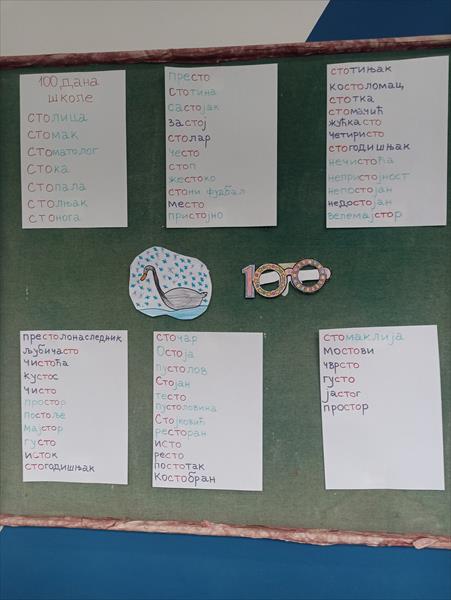 100 дана
школе
столица
стомак
стоматолог
стока
стопала
столњак
стонога
престо
стотина
састојак
застој
столар
често
стоп
жестоко
стони фудбал
место
пристојно
стотињак
костоломац
стотка
стомачић
жућкасто
четиристо
стогодишњак
нечистоћа
непристојност
непостојан
недостојан
велемајстор
100
престолонаследник
љубичасто
чистоћа
кустос
чисто
простор
постоље
мајстор
густо
исток
стогодишњак
сточар
Остоја
пустолов
Стојан
тесто
пустоловина
Стојковић
ресторан
исто
ресто
постотак
Костобран
стомаклија
мостови
чврсто
густо
јастог
простор